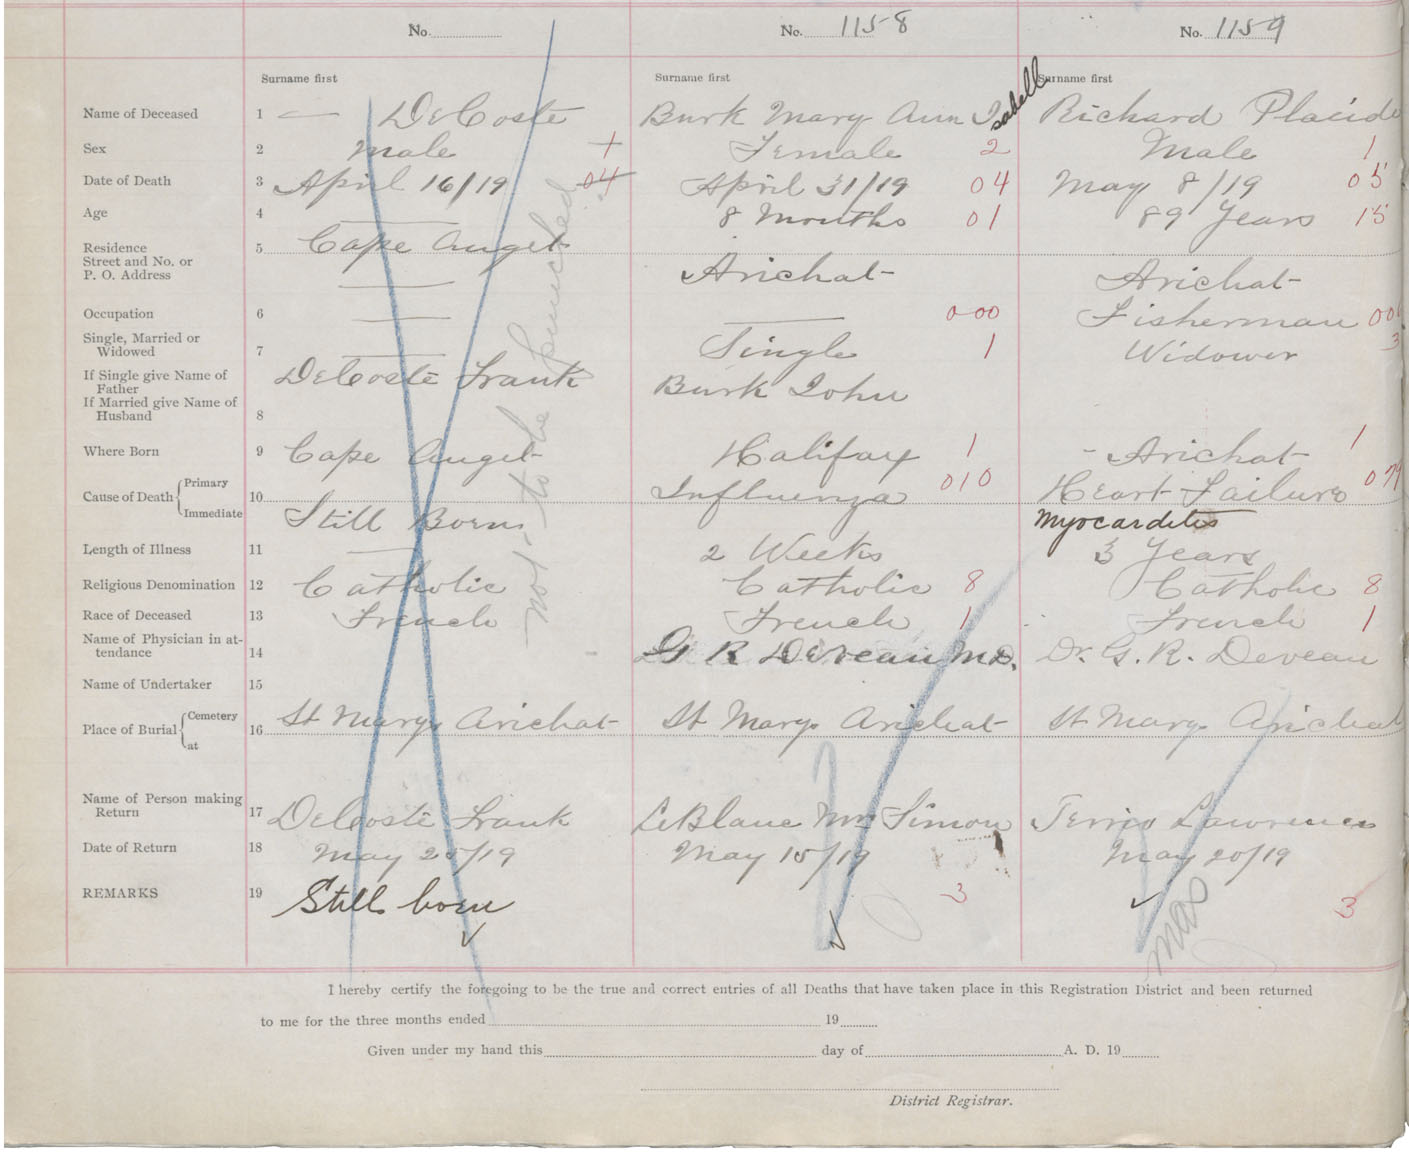 No.
No. 1158
No. 1159
Surname first
Surname first
Surname first
Name of Deceased 1 — DeCoste
Burk Mary Ann Isabell
Richard Placide
Sex 2 Male +
Female 2
Male 1
Date of Death 3 April 16/19 04
April 31/19 04
May 8/19 05
Age 4 —
8 Months 01
89 Years 15
Residence
Street and No. or
P. O. Address
5 Cape Auget
Arichat
Arichat
Occupation 6 —
— 000
Fisherman
Single, Married or
Widowed
7 —
Single 1
Widower 3
If Single give Name of
Father
If Married give Name of
Husband
8 DeCoste Frank
Burk John
Where Born 9 Cape Auget
Halifax 1
- Arichat 1
Cause of Death { Primary
Immediate
10 Still Born
Influenza 010
Heart Failure 079
Myocarditis
Length of Illness 11 —
2 Weeks
3 Years
Religious Denomination 12 Catholic
Catholic 8
Catholic 8
Race of Deceased 13 French
French 1
French 1
Name of Physician in at-
tendance
14
G R Deveau M.D.
Dr. G. R. Deveau
Name of Undertaker 15
Place of Burial { Cemetery
at
16 St Marys Arichat
St Marys Arichat
St Marys Arichat
Name of Person making
Return
17 DeCoste Frank
LeBlanc Mrs Simon
Terrio Lawrence
Date of Return 18 May 25/19
May 15/19
May 20/19
REMARKS 19 Still born
3
3
not to be punched
May
I hereby certify the foregoing to be the true and correct entries of all Deaths that have taken place in this Registration District and been returned
to me for the three months ended 19
Given under my hand this day of A. D. 19
District Registrar.